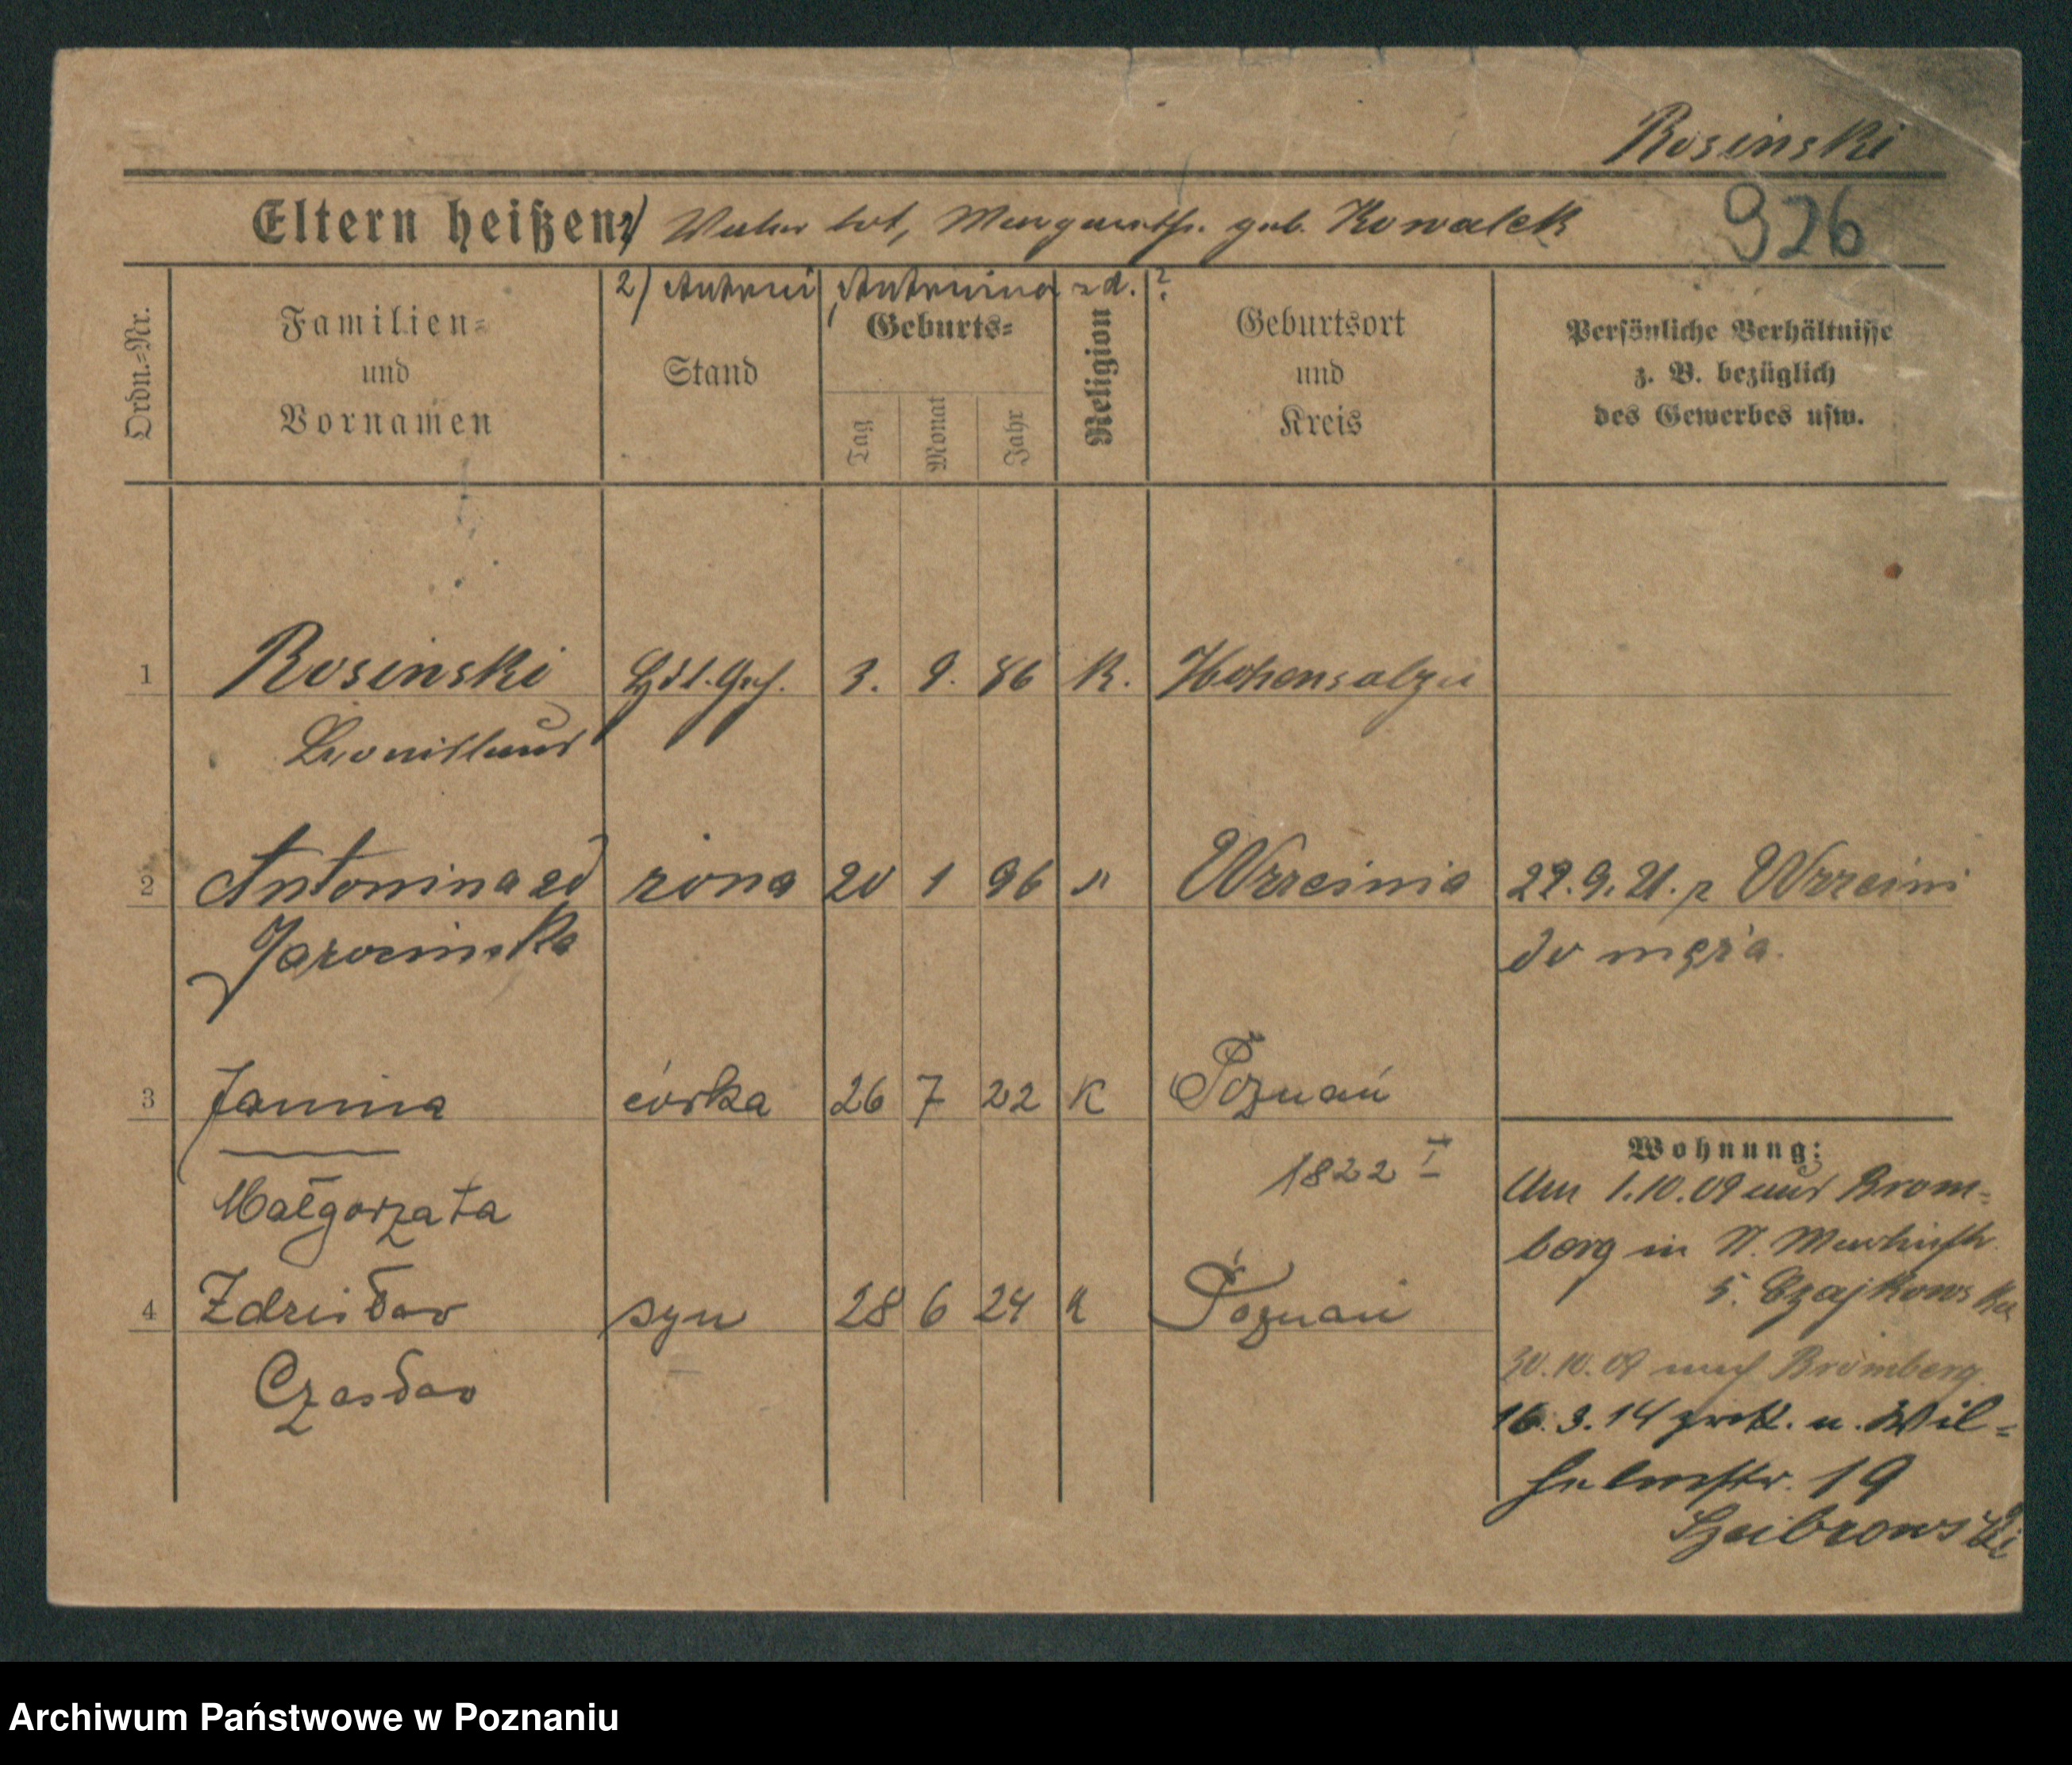 Rosinski
926
Eltern heißen: 1) Vater tot, Margareth. geb. Kowalek
2) Antoni, Antonina zd. ?
Ordn.=Nr.
Familien=
und
Vornamen
Stand
Geburts=
Tag
Monat
Jahr
Religion
Geburtsort
und
Kreis
Persönliche Verhältnisse
z. B. bezüglich
des Gewerbes usw.
1 Rosinski Hdl. Geh. 3. 9. 86 K. Hohensalza
2 Antonina zd żona 20 1 96 " Września 22.9.21. z Wrześni
Jarocinska do męża.
3 Janina córka 26 7 22 K Poznań
1822 I
Małgorzata
4 Zdzisław syn 28 6 24 K Poznań
Czesław
Wohnung:
Am 1.10.09 aus Brom=
berg in
5. Czajkowska
30.10.09 nach Bromberg.
16.3.14 zurck. n. Wil=
helmstr. 19